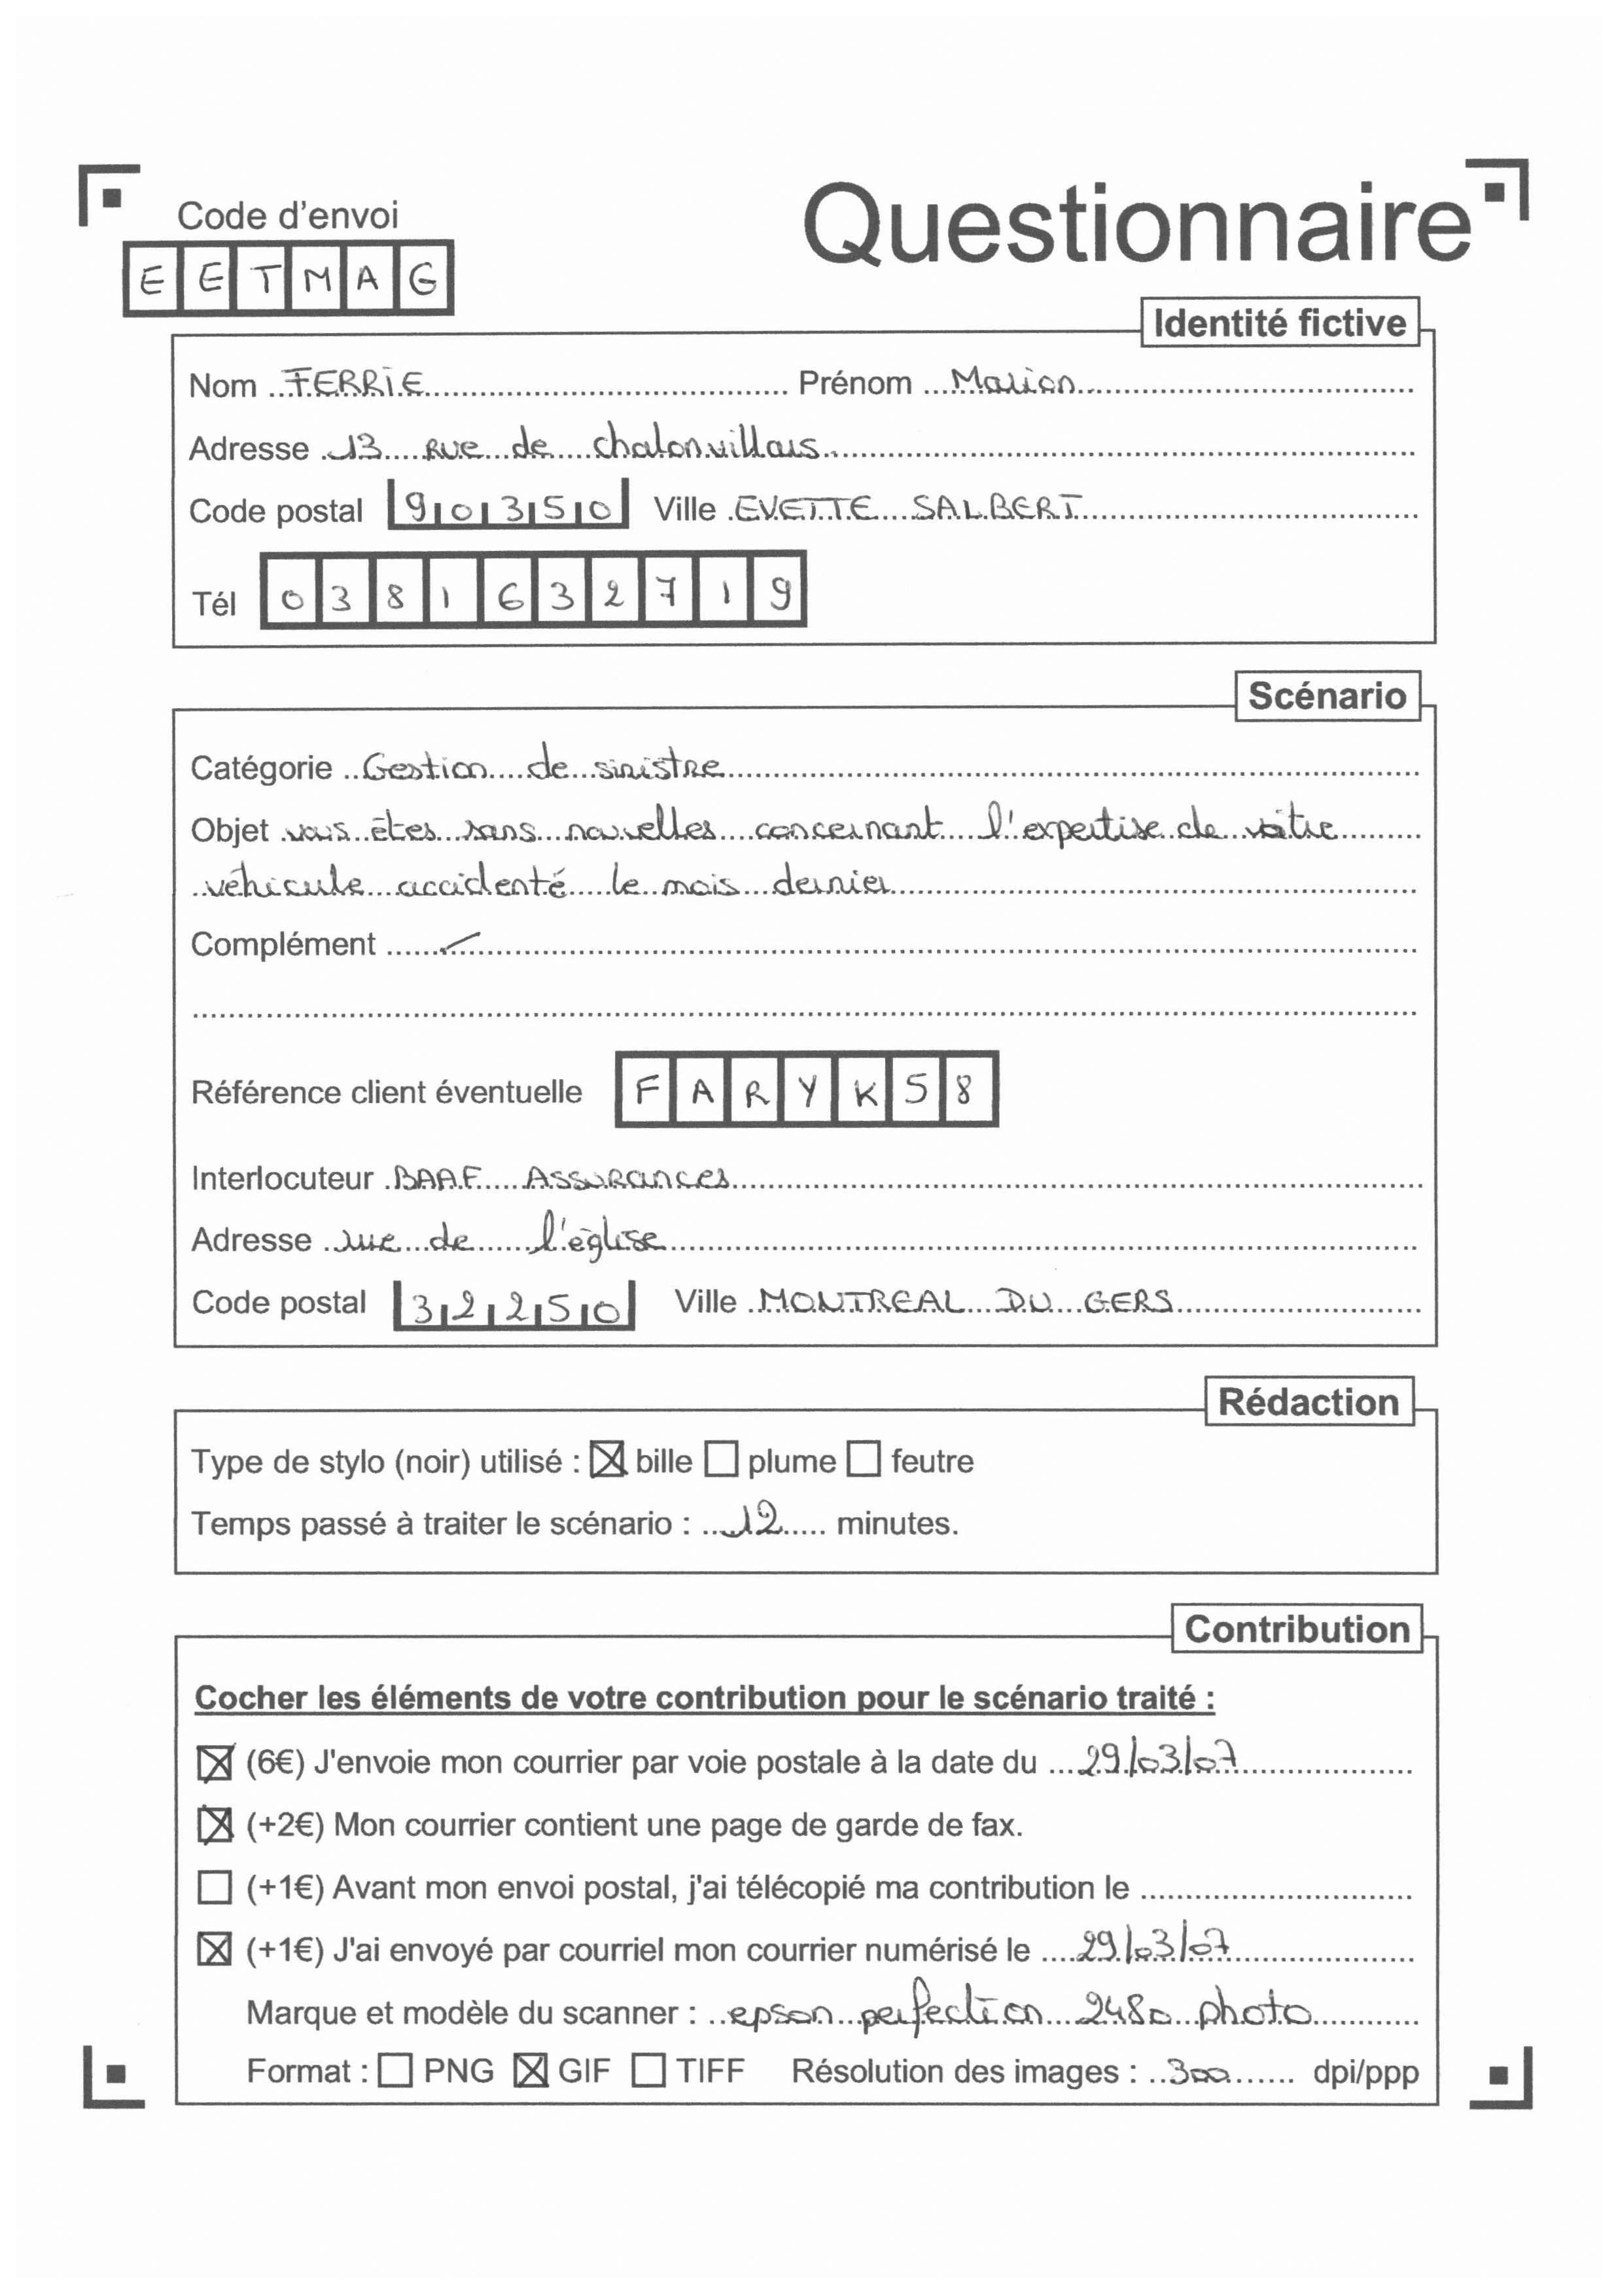 Code d'envoi
Questionnaire
EETMAG
Identité fictive
Nom FERRIE Prénom Marion
Adresse 13 Rue de chalonvillais
Code postal 90350 Ville EVETTE SALBERT
Tél 0381632719
Scénario
Catégorie Gestion de sinistre
Objet vous êtes sans nouvelles concernant l'expertise de votre
véhicule accidenté le mois dernier
Complément
Référence client éventuelle FARYK58
Interlocuteur BAAF Assurances
Adresse rue de l'église
Code postal 32250 Ville MONTREAL DU GERS
Rédaction
Type de stylo (noir) utilisé : ☒ bille ☐ plume ☐ feutre
Temps passé à traiter le scénario : 12 minutes.
Contribution
Cocher les éléments de votre contribution pour le scénario traité :
☒ (6€) J'envoie mon courrier par voie postale à la date du 29/03/07
☒ (+2€) Mon courrier contient une page de garde de fax.
☐ (+1€) Avant mon envoi postal, j'ai télécopié ma contribution le
☒ (+1€) J'ai envoyé par courriel mon courrier numérisé le 29/03/07
Marque et modèle du scanner : epson perfection 2480 photo
Format : ☐ PNG ☒ GIF ☐ TIFF Résolution des images : 300 dpi/ppp